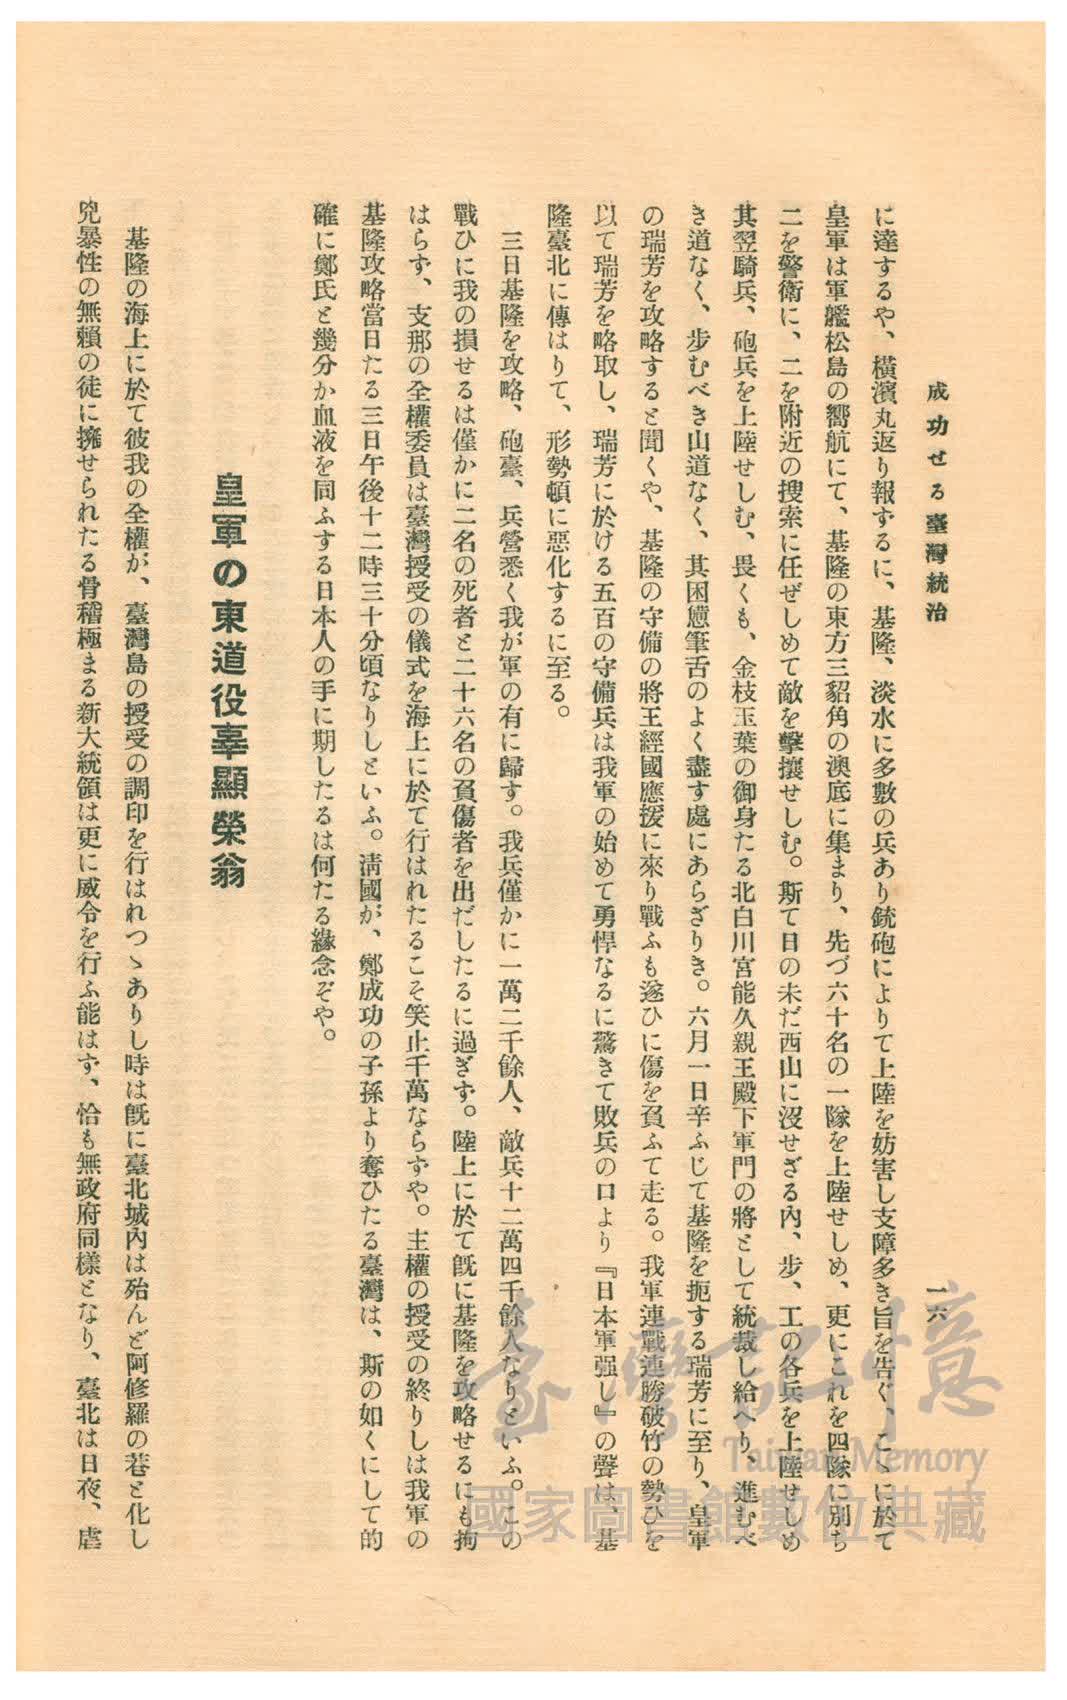 成功せる臺灣統治
一六
に達するや、橫濱丸返り報ずるに、基隆、淡水に多數の兵あり銃砲によりて上陸を妨害し支障多き旨を告ぐ、こゝに於て
皇軍は軍艦松島の嚮航にて、基隆の東方三貂角の澳底に集まり、先づ六十名の一隊を上陸せしめ、更にこれを四隊に別ち
二を警衛に、二を附近の搜索に任ぜしめて敵を擊攘せしむ。斯て日の未だ西山に沒せざる內、步、工の各兵を上陸せしめ
其翌騎兵、砲兵を上陸せしむ、畏くも、金枝玉葉の御身たる北白川宮能久親王殿下軍門の將として統裁し給へり、進むべ
き道なく、步むべき山道なく、其困憊筆舌のよく盡す處にあらざりき。六月一日辛ふじて基隆を扼する瑞芳に至り、皇軍
の瑞芳を攻略すると聞くや、基隆の守備の將王經國應援に來り戰ふも遂ひに傷を負ふて走る。我軍連戰連勝破竹の勢ひを
以て瑞芳を略取し、瑞芳に於ける五百の守備兵は我軍の始めて勇悍なるに驚きて敗兵の口より『日本軍强し』の聲は、基
隆臺北に傳はりて、形勢頓に惡化するに至る。
三日基隆を攻略、砲臺、兵營悉く我が軍の有に歸す。我兵僅かに一萬二千餘人、敵兵十二萬四千餘人なりといふ。この
戰ひに我の損せるは僅かに二名の死者と二十六名の負傷者を出だしたるに過ぎず。陸上に於て旣に基隆を攻略せるにも拘
はらず、支那の全權委員は臺灣授受の儀式を海上に於て行はれたるこそ笑止千萬ならずや。主權の授受の終りしは我軍の
基隆攻略當日たる三日午後十二時三十分頃なりしといふ。淸國が、鄭成功の子孫より奪ひたる臺灣は、斯の如くにして的
確に鄭氏と幾分か血液を同ふする日本人の手に期したるは何たる緣念ぞや。
皇軍の東道役辜顯榮翁
基隆の海上に於て彼我の全權が、臺灣島の授受の調印を行はれつゝありし時は旣に臺北城內は殆んど阿修羅の巷と化し
兇暴性の無賴の徒に擁せられたる骨稽極まる新大統領は更に威令を行ふ能はず、恰も無政府同樣となり、臺北は日夜、虐
臺灣記憶
Taiwan Memory
國家圖書館數位典藏